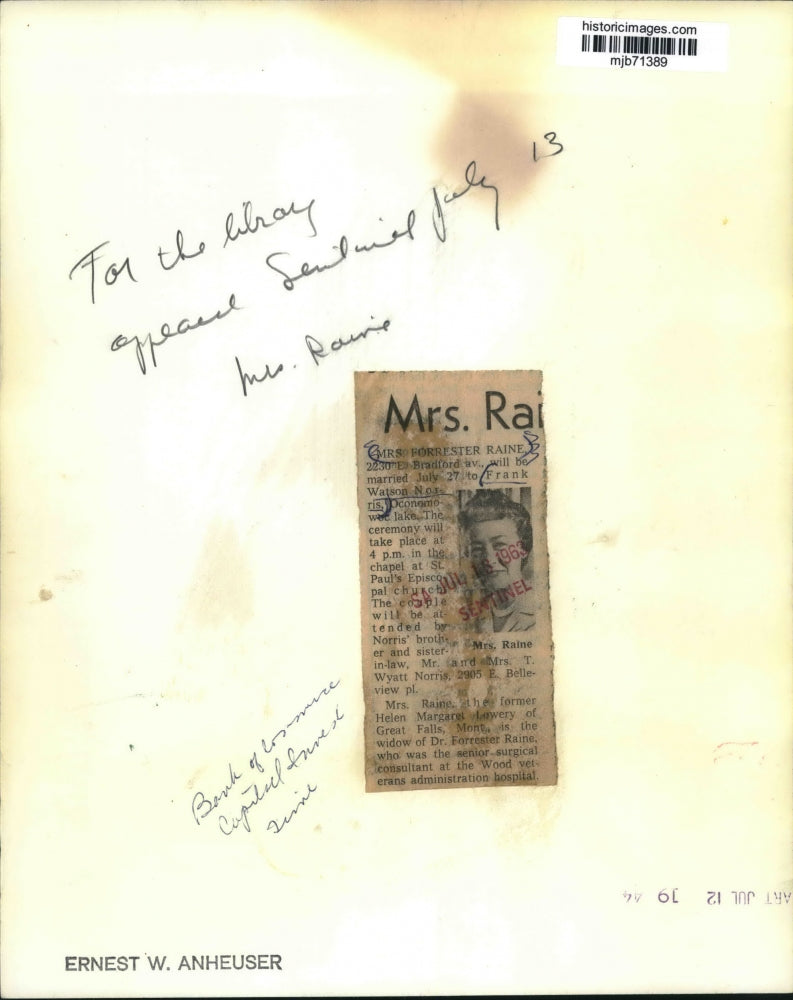 historicimages.com
mjb71389
For the library
appeared Sentinel July 13
Mrs. Raine
Mrs. Rai
MRS. FORRESTER RAINE,
2230 E. Bradford av., will be
married July 27 to Frank
Watson Nor-
ris, Oconomo-
woc lake. The
ceremony will
take place at
4 p.m. in the
chapel at St.
Paul's Episco-
pal church.
The couple
will be at-
tended by
Norris' broth-
er and sister-
in-law, Mr. and Mrs. T.
Wyatt Norris, 2905 E. Belle-
view pl.
Mrs. Raine, the former
Helen Margaret Lowery of
Great Falls, Mont., is the
widow of Dr. Forrester Raine,
who was the senior surgical
consultant at the Wood vet-
erans administration hospital.
Mrs. Raine
SA JUL 13 1963
SENTINEL
Bank of Commerce
Capital Invest
ART JUL 12 19 44
ERNEST W. ANHEUSER